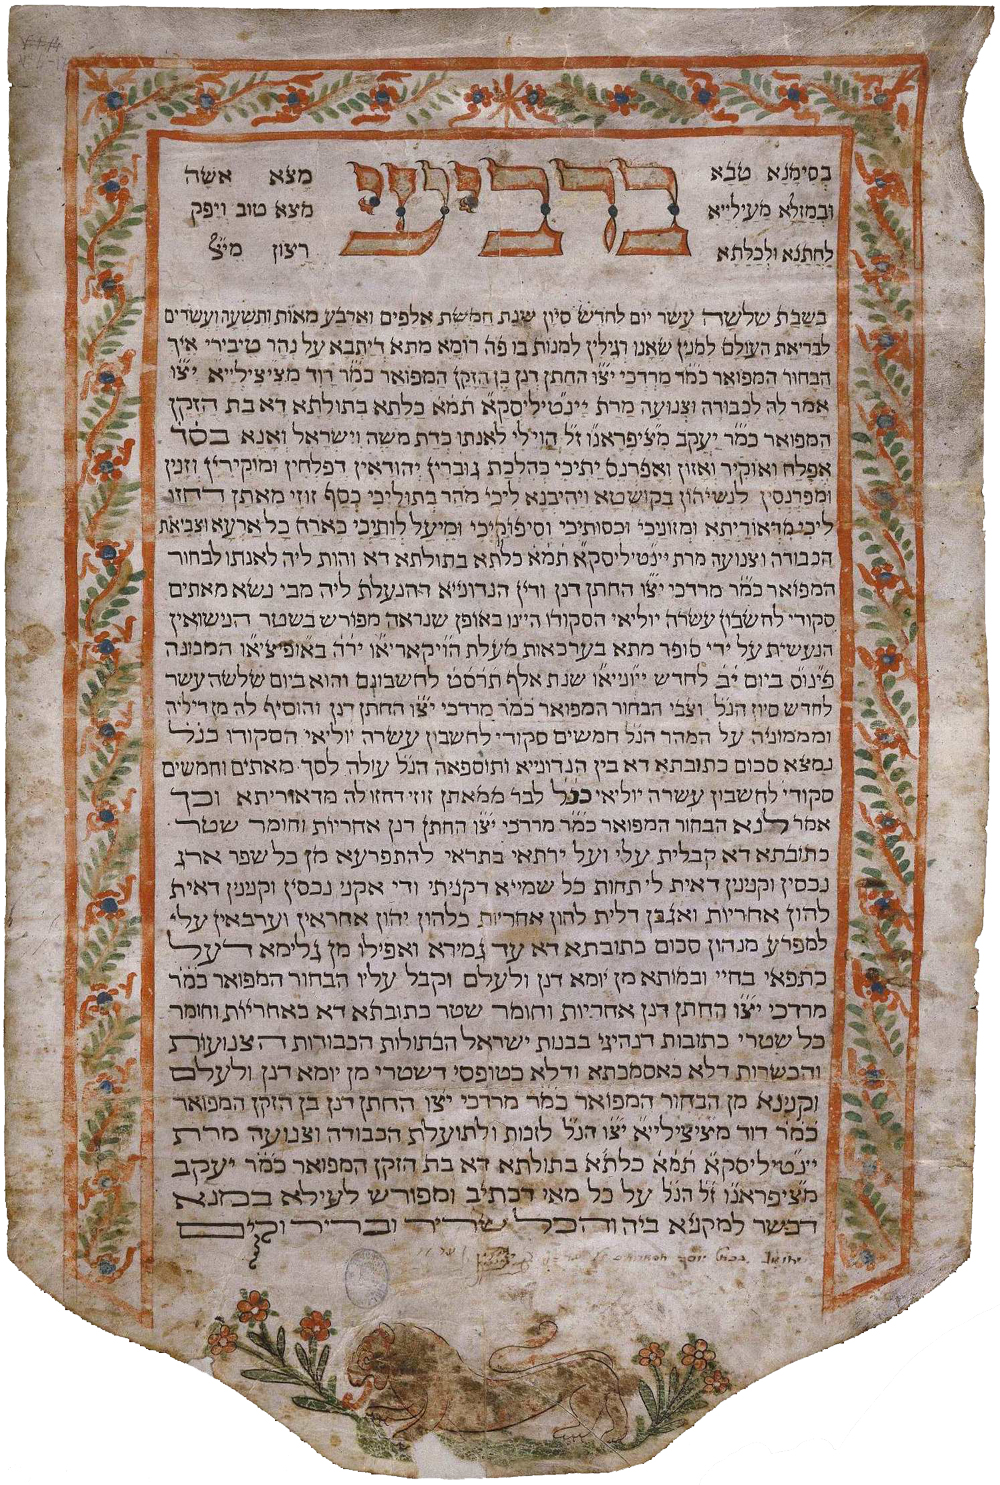 בסימנא טבא
ובמזלא מעילייא
לחתנא ולכלתא
ברביעי
מצא אשה
מצא טוב ויפק
רצון
בשבת שלשה עשר יום לחדש סיון שנת חמשת אלפים וארבע מאות ותשעה ועשרים
לבריאת העולם למנין שאנו רגילין למנות בו פה רומא מתא דיתבא על נהר טיבירי איך
הבחור המפואר כמ״ר מרדכי יצ״ו החתן דנן בן הזקן המפואר כמ״ר דוד מציצילייא יצ״ו
אמר לה לכבודה וצנועה מרת יינטיליסקא תמא כלתא בתולתא דא בת הזקן
המפואר כמ״ר יעקב מציפראנו ז״ל הויי לי לאנתו כדת משה וישראל ואנא בסד
אפלח ואוקיר ואזון ואפרנס יתיכי כהלכת גוברין יהודאין דפלחין ומוקירין וזנין
ומפרנסין לנשיהון בקושטא ויהיבנא ליכי מהר בתוליכי כסף זוזי מאתן דחזו
ליכי מדאוריתא ומזוניכי וכסותיכי וסיפוקיכי ומיעל לותיכי כארח כל ארעא וצביאת
הכבודה וצנועה מרת יינטיליסקא תמא כלתא בתולתא דא והות ליה לאנתו לבחור
המפואר כמ״ר מרדכי יצ״ו החתן דנן ודין הנדוניא דהנעלת ליה מבי נשא מאתים
סקודי לחשבון עשרה יוליאי הסקודו היינו באופן שנראה מפורש בשטר הנישואין
הנעשית על ידי סופר מתא בערכאות מעלת הויקאריאו ירה באופיציאו המכונה
ביום י״ב לחדש יוניאו שנת אלף תרסט לחשבונם והוא ביום שלשה עשר
לחדש סיון הנ״ל וצבי הבחור המפואר כמ״ר מרדכי יצ״ו החתן דנן והוסיף לה מן דיליה
ומממוניה על המהר הנ״ל חמשים סקודי לחשבון עשרה יוליאי הסקודו כנ״ל
נמצא סכום כתובתא דא בין הנדוניא ותוספאה הנ״ל עולה לסך מאתים וחמשים
סקודי לחשבון עשרה יוליאי כנ״ל לבר ממאתן זוזי דחזו לה מדאוריתא וכך
אמר לנא הבחור המפואר כמ״ר מרדכי יצ״ו החתן דנן אחריות וחומר שטר
כתובתא דא קבלית עלי ועל ירתאי בתראי להתפרעא מן כל שפר ארג
נכסין וקנינין דאית לי תחות כל שמייא דקניתי ודי אקני נכסין וקנינין דאית
להון אחריות ואגבן דלית להון אחריות כלהון יהון אחראין וערבאין עלי
למפרע מנהון סכום כתובתא דא עד גמירא ואפילו מן גלימא דעל
כתפאי בחיי ובמותא מן יומא דנן ולעלם וקבל עליו הבחור המפואר כמ״ר
מרדכי יצ״ו החתן דנן אחריות וחומר שטר כתובתא דא כאחריות וחומר
כל שטרי כתובות דנהיגי בבנות ישראל הבתולות הכבודות הצנועות
והכשרות דלא כאסמכתא ודלא כטופסי דשטרי מן יומא דנן ולעלם
וקנינא מן הבחור המפואר כמ״ר מרדכי יצ״ו החתן דנן בן הזקן המפואר
כמ״ר דוד מציצילייא יצ״ו הנ״ל לזכות ולתועלת הכבודה וצנועה מרת
יינטיליסקא תמא כלתא בתולתא דא בת הזקן המפואר כמ״ר יעקב
מציפראנו ז״ל הנ״ל על כל מאי דכתיב ומפורש לעילא במנא
דכשר למקניא ביה והכל שריר ובריר וקים